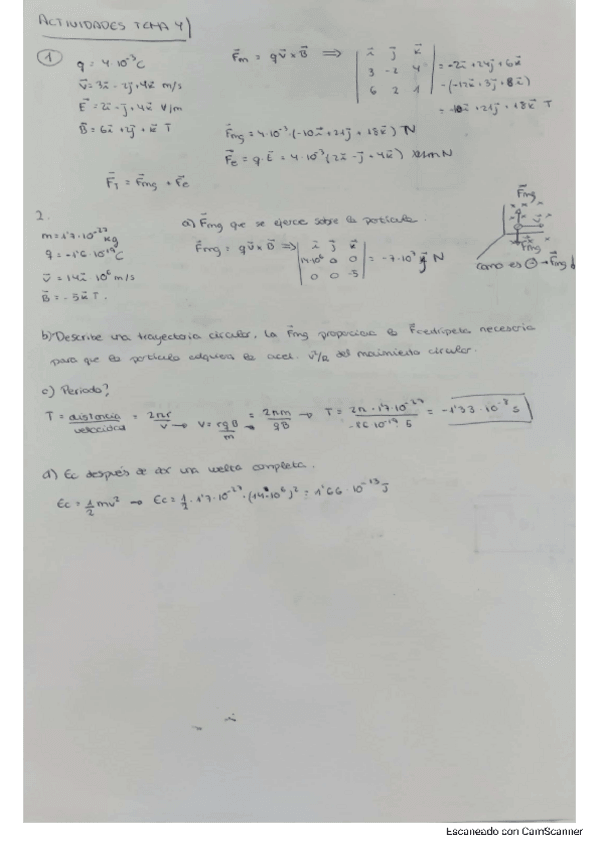 ACTIVIDADES TEMA 4
1
q = 4·10⁻³C
v⃗ = 3i⃗ - 2j⃗ + 4k⃗ m/s
E⃗ = 2i⃗ - j⃗ + 4k⃗ V/m
B⃗ = 6i⃗ + 2j⃗ + k⃗ T
F⃗m = q v⃗ x B⃗ ⟹ | i⃗ j⃗ k⃗ | = -2i⃗ + 24j⃗ + 6k⃗
3 -2 4 - (-12k⃗ + 3j⃗ + 8i⃗)
6 2 1 = -10i⃗ + 21j⃗ + 18k⃗ T
F⃗mg = 4·10⁻³ · (-10i⃗ + 21j⃗ + 18k⃗) N
F⃗e = q · E⃗ = 4·10⁻³ (2i⃗ - j⃗ + 4k⃗) N
F⃗T = F⃗mg + F⃗e
2.
m = 1'7·10⁻²⁷ kg
q = -1'6·10⁻¹⁹ C
v⃗ = 14i⃗ 10⁶ m/s
B⃗ = -5k⃗ T.
a) F⃗mg que se ejerce sobre la partícula.
F⃗mg = q v⃗ x B⃗ ⟹ | i⃗ j⃗ k⃗ | = -7·10⁷ j⃗ N
14·10⁶ 0 0
0 0 -5
F⃗mg
como es ⊖ → F⃗mg ↓
b) Describe una trayectoria circular, la F⃗mg proporciona la F⃗centrípeta necesaria
para que la partícula adquiera la acel. v²/R del movimiento circular.
c) Periodo?
T = distancia/velocidad = 2πr/v → v = rqB/m → = 2πm/qB → T = 2π · 1'7·10⁻²⁷ / -1'6·10⁻¹⁹ · 5 = -1'33 · 10⁻⁸ s
d) Ec después de dar una vuelta completa.
Ec = 1/2 mv² → Ec = 1/2 · 1'7·10⁻²⁷ · (14·10⁶)² = 1'66 · 10⁻¹³ J
Escaneado con CamScanner